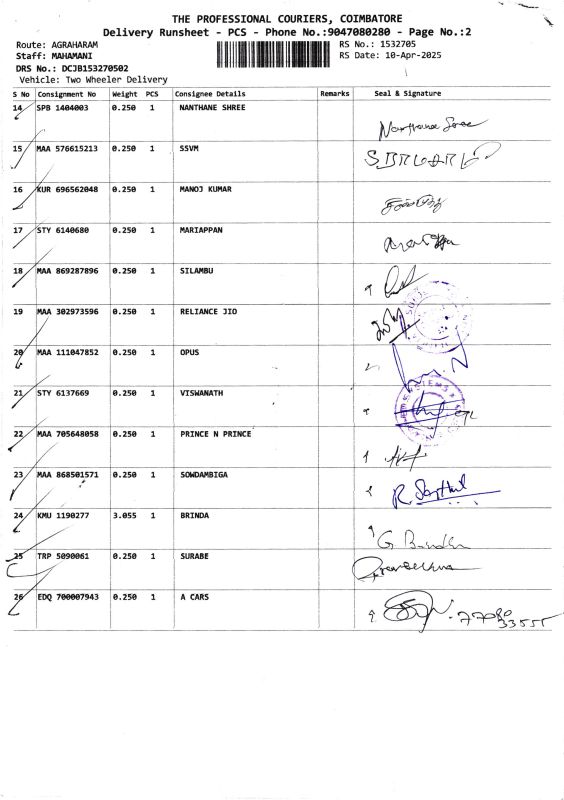 THE PROFESSIONAL COURIERS, COIMBATORE
Delivery Runsheet - PCS - Phone No.:9047080280 - Page No.:2
Route: AGRAHARAM RS No.: 1532705
Staff: MAHAMANI RS Date: 10-Apr-2025
DRS No.: DCJB153270502
Vehicle: Two Wheeler Delivery
S No Consignment No Weight PCS Consignee Details Remarks Seal & Signature
14 SPB 1404003 0.250 1 NANTHANE SHREE
Nanthana Sree
15 MAA 576615213 0.250 1 SSVM
16 KUR 696562048 0.250 1 MANOJ KUMAR
17 STY 6140680 0.250 1 MARIAPPAN
18 MAA 869287896 0.250 1 SILAMBU
19 MAA 302973596 0.250 1 RELIANCE JIO
20 MAA 111047852 0.250 1 OPUS
21 STY 6137669 0.250 1 VISWANATH
22 MAA 705648058 0.250 1 PRINCE N PRINCE
23 MAA 868501571 0.250 1 SOWDAMBIGA
R. Senthil
24 KMU 1190277 3.055 1 BRINDA
G. Brindha
25 TRP 5090061 0.250 1 SURABE
26 EDQ 700007943 0.250 1 A CARS
77080
33555